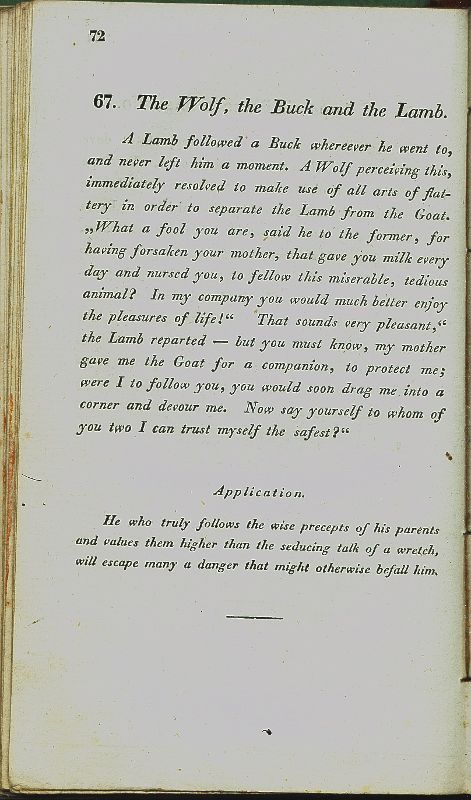 72
67. The Wolf, the Buck and the Lamb.
A Lamb followed a Buck whereever he went to,
and never left him a moment. A Wolf perceiving this,
immediately resolved to make use of all arts of flat-
tery in order to separate the Lamb from the Goat.
„What a fool you are, said he to the former, for
having forsaken your mother, that gave you milk every
day and nursed you, to fellow this miserable, tedious
animal? In my company you would much better enjoy
the pleasures of life!“ That sounds very pleasant,“
the Lamb reparted — but you must know, my mother
gave me the Goat for a companion, to protect me;
were I to follow you, you would soon drag me into a
corner and devour me. Now say yourself to whom of
you two I can trust myself the safest?“
Application.
He who truly follows the wise precepts of his parents
and values them higher than the seducing talk of a wretch,
will escape many a danger that might otherwise befall him.